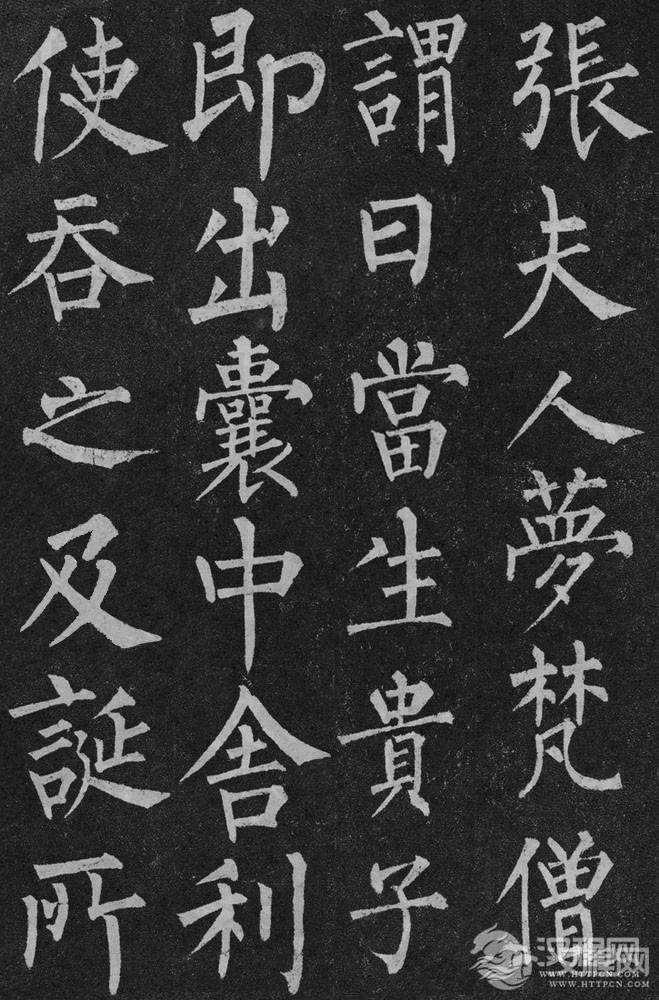 張夫人夢梵僧
謂曰當生貴子
即出囊中舍利
使吞之及誕所
汉程网
WWW.HTTPCN.COM
WWW.HTTPCN.COM